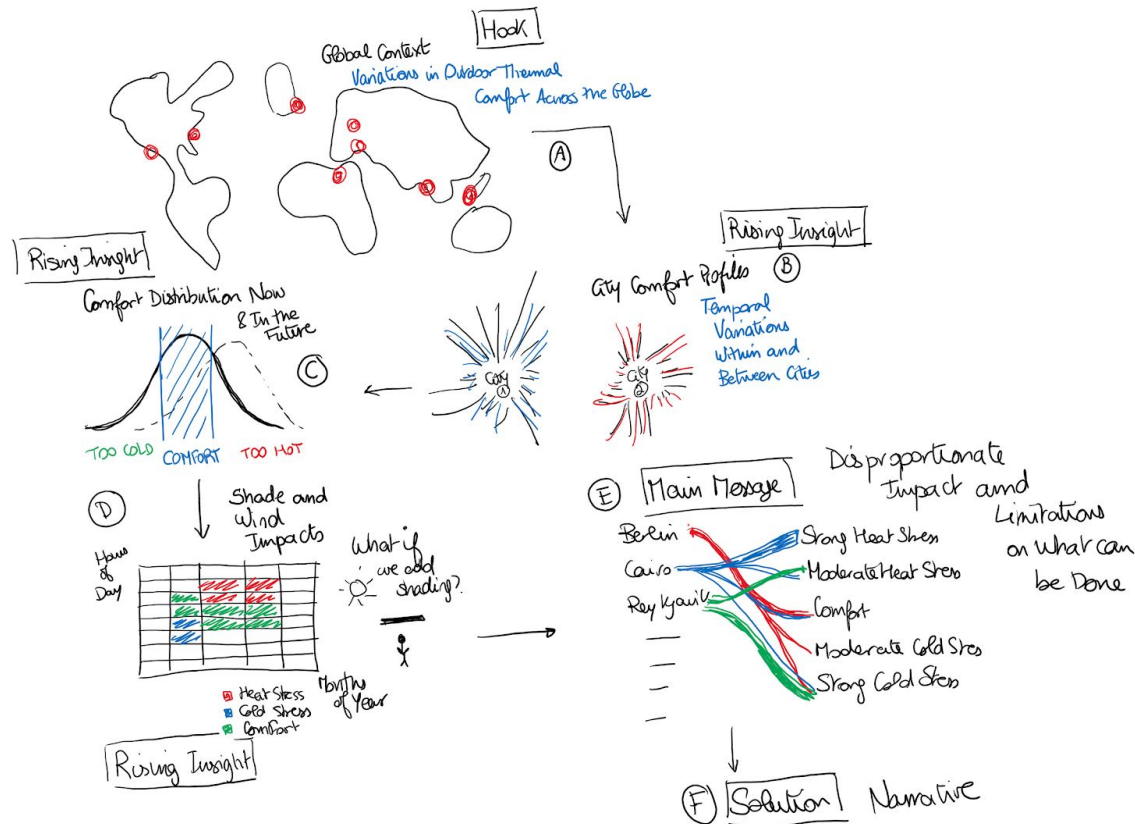 Hook
Global Context
Variations in Outdoor Thermal
Comfort Across the Globe
A
Rising Insight
B
City Comfort Profiles
Temporal
Variations
Within and
Between Cities
City
1
City
2
Rising Insight
Comfort Distribution Now
& In the
Future
C
TOO COLD
COMFORT
TOO HOT
D
Shade and
Wind
Impacts
Hours
of
Day
What if
we add
shading?
Months
of Year
Heat Stress
Cold Stress
Comfort
Rising Insight
E
Main Message
Disproportionate
Impact and
Limitations
on what can
be Done
Berlin
Cairo
Reykjavik
Strong Heat Stress
Moderate Heat Stress
Comfort
Moderate Cold Stres
Strong Cold Stress
F
Solution
Narrative